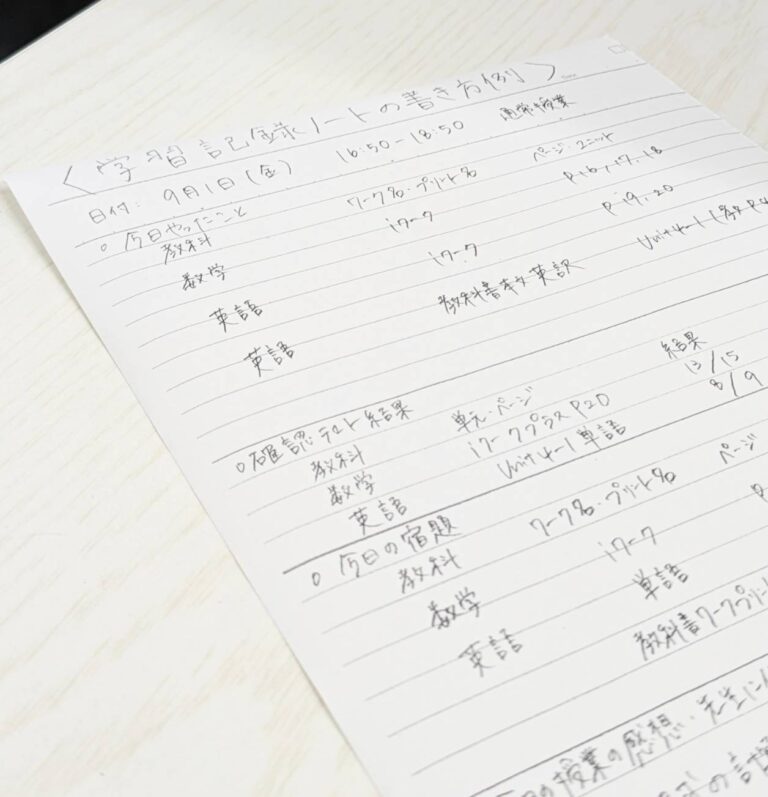 〈学習記録ノートの書き方例〉
日付: 9月1日(金) 16:50-18:50 通常授業
○ 今日やったこと
教科 ワーク名・プリント名 ページ・ユニット
数学 iワーク P16, 17, 18
英語 iワーク P19, 20
英語 教科書本文英訳 Unit4-1
○確認テスト結果
教科 単元・ページ 結果
数学 iワークプラスP20 13/15
英語 Unit4-1 単語 8/9
○ 今日の宿題
教科 ワーク名・プリント名 ページ
数学 iワーク P
英語 単語
教科書ワークプリント
今日の授業の感想・先生に
の計